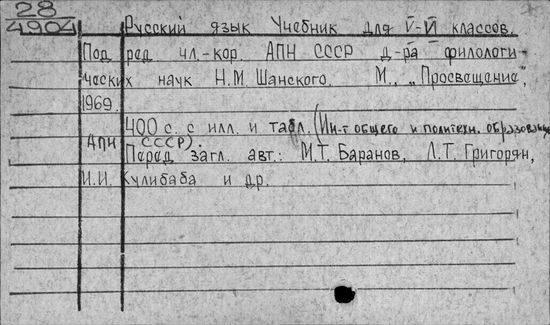 28
4904
Русский язык Учебник для V-VI классов.
Под ред чл.-кор. АПН СССР д-ра филологи-
ческих наук Н.М. Шанского. М., „Просвещение",
1969.
400 с. с илл. и табл. (Ин-т общего и политехн. образования
АПН СССР).
Перед загл. авт.: М.Т. Баранов, Л.Т. Григорян,
И.И. Кулибаба и др.